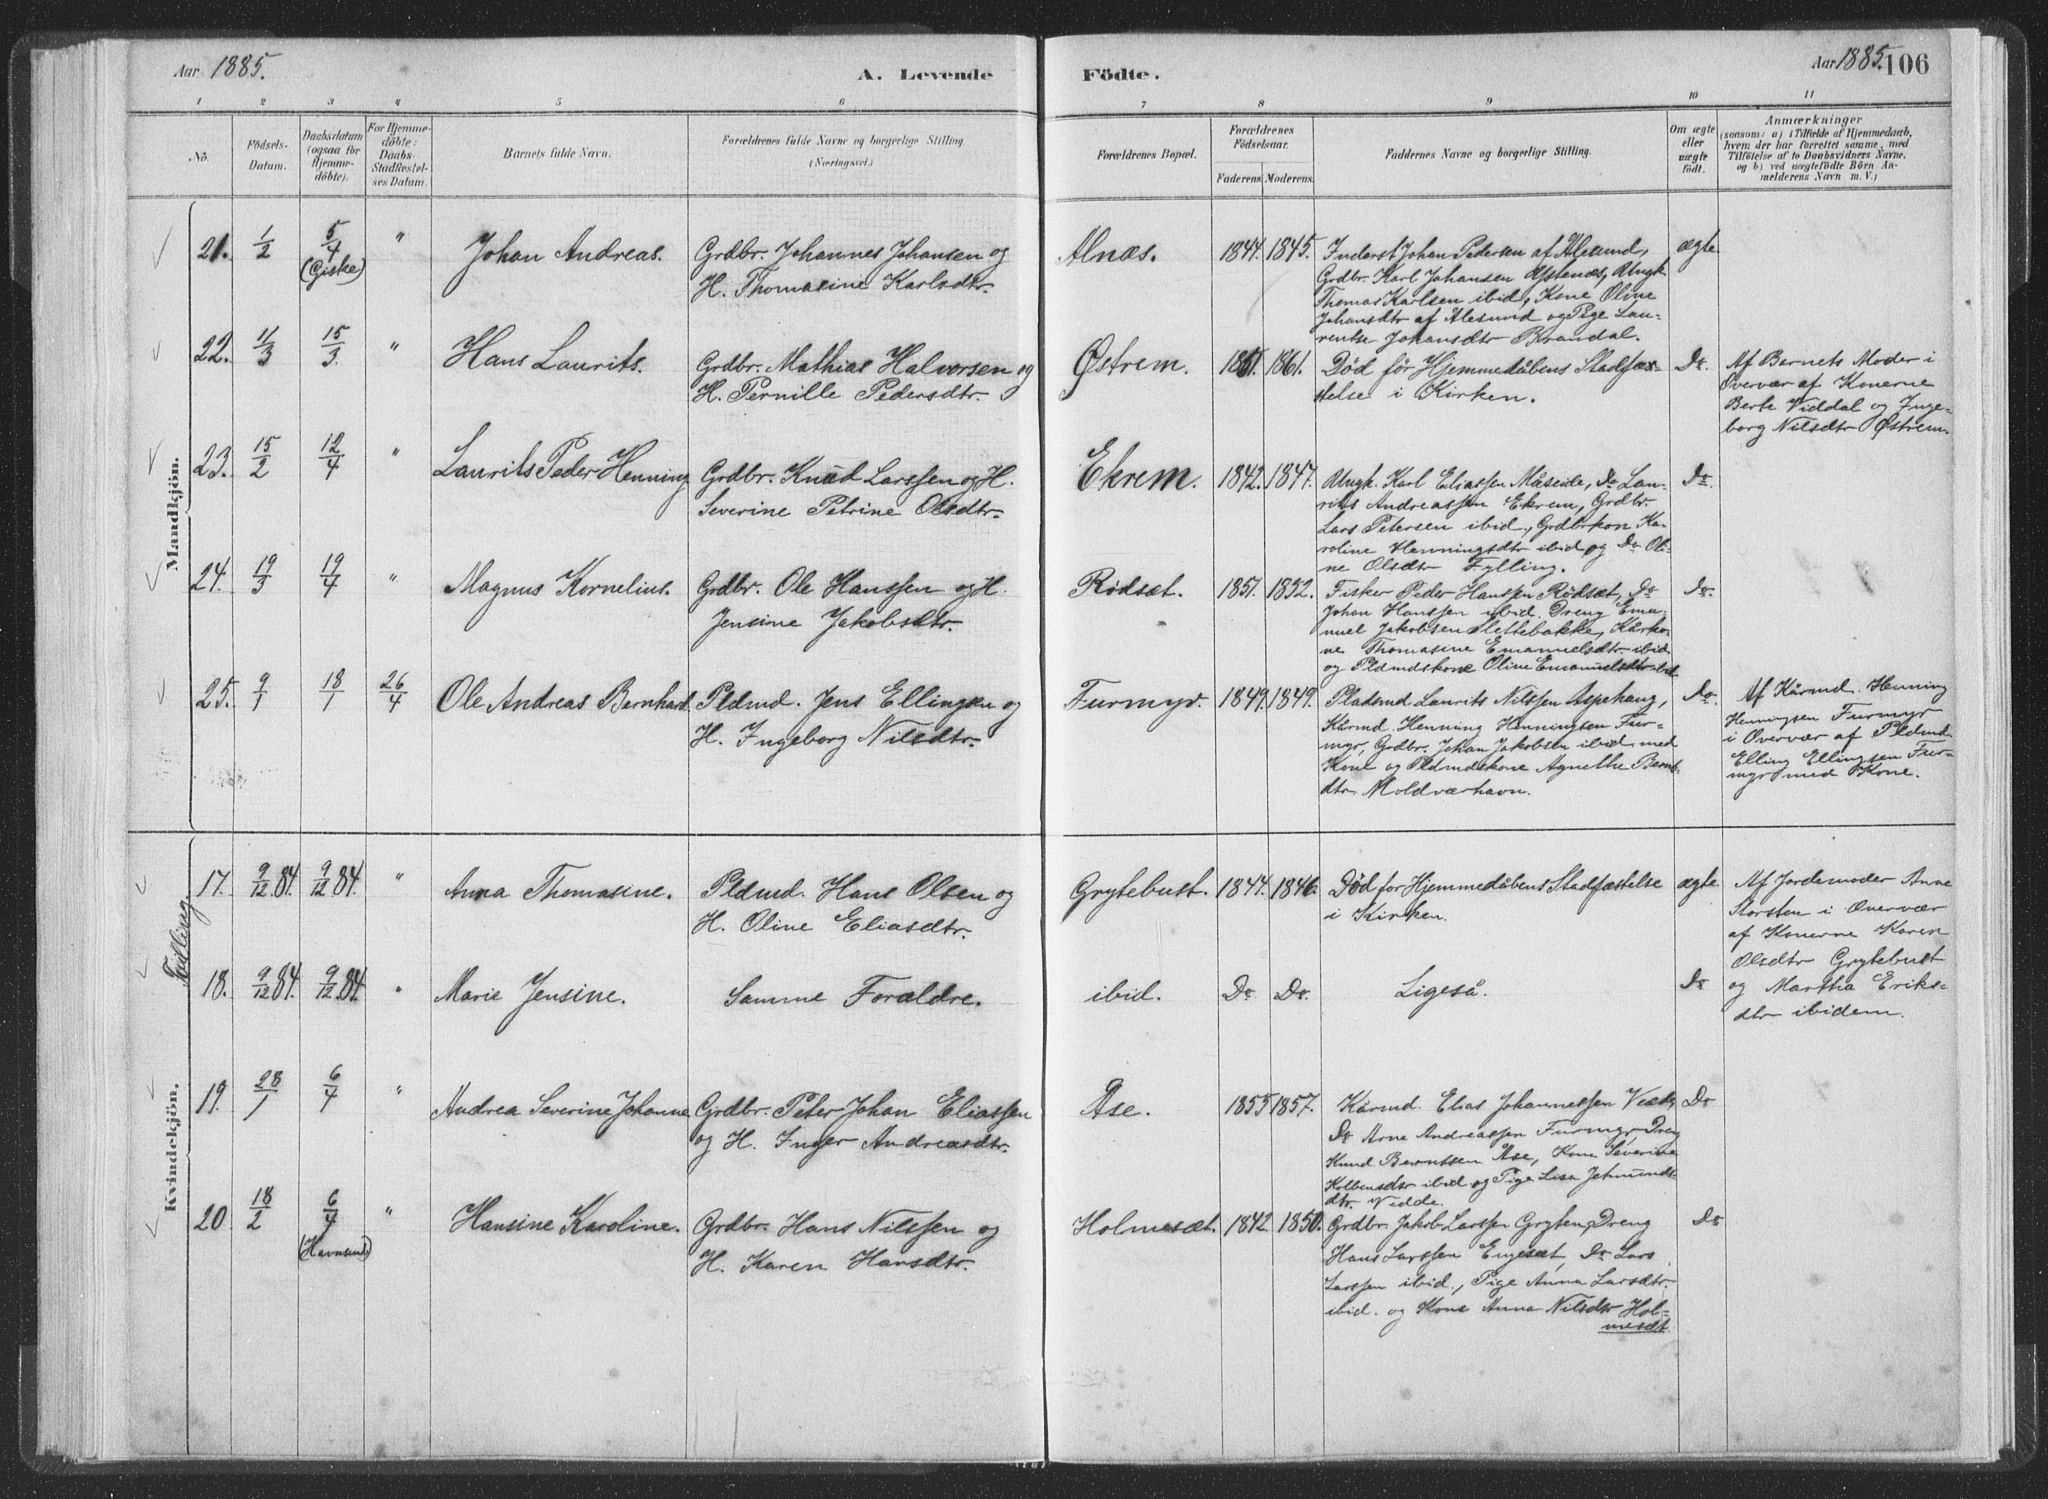 Aar 1885.
A. Levende
Födte.
Aar 1885. 106
1 2 3 4 5 6 7 8 9 10 11
No.
Födsels-
Datum.
Daabsdatum
(ogsaa for
Hjemme-
döbte).
For Hjemme-
döbte:
Daabs-
Stadfæstel-
ses Datum.
Barnets fulde Navn.
Forældrenes fulde Navne og borgerlige Stilling
(Næringsvei.)
Forældrenes Bopæl.
Forældrenes
Födselsaar.
Faderens. Moderens.
Faddernes Navne og borgerlige Stilling.
Om ægte
eller
uægte
født.
Anmærkninger
(saasom: a) i Tilfælde af Hjemmedaab,
hvem der har forrettet samme, med
Tilföielse af to Daabsvidners Navne,
og b) ved uægtefödte Börn An-
melderens Navn m. V.)
Mandkjön.
21. 1/2 5/4 (Giske) " Johan Andreas. Grdbr. Johannes Johansen og
H. Thomasine Karlsdtr.
Alnæs. 1844. 1845. Inderst Johan Pedersen af Alesund,
Grdbr. Karl Johansen Ulstenes, Ungk.
Thomas Karlsen ibid, Kone Oline
Johansdtr af Alesund og Pige Lau-
rentse Johansdtr Brandal.
ægte
22. 11/3 15/3. " Hans Laurits. Grdbr. Mathias Halvorsen og
H. Pernille Pedersdtr.
Østrem. 1861. 1861. Død før Hjemmedåbens Stadfæs-
telse i Kirken.
Do. Af Barnets Moder i
Overvær af Konerne
Berte Viddal og Inge-
borg Nilsdtr Østrem.
23. 15/2 12/4 " Laurits Peder Henning Grdbr. Knud Larssen og H.
Severine Petrine Olsdtr.
Ekrem. 1842. 1847. Ungk. Karl Eliassen Måseide, Do Lau-
rits Andreassen Ekrem, Grdbr.
Lars Petersen ibid, Grdbrkon Ka-
roline Henningsdtr ibid og Do Oli-
ne Olsdtr Fylling.
Do.
24. 19/3 19/4 " Magnus Kornelius. Grdbr. Ole Hanssen og H.
Jensine Jakobsdtr.
Rødsæt. 1851. 1852. Fisker Peder Hanssen Rødsæt, Do
Johan Hanssen ibid, Dreng Ema-
nuel Jakobsen Slettebakke, Kårko-
ne Thomasine Emanuelsdtr ibid
og Pldmdskone Oline Emanuelsdtr ibid
Do.
25. 9/1 18/1 26/4 Ole Andreas Bernhard. Pldmd. Jens Ellingsen og
H. Ingeborg Nilsdtr.
Furmyr. 1849. 1849. Pladsmd Laurits Nilssen Aspehaug,
Kårmd. Henning Henningsen Fur-
myr, Grdbr. Johan Jakobsen ibid med
Kone og Pldmdskone Agnethe Bernt-
dtr Moldværhavn.
Do. Af Kårmd. Henning
Henningsen Furmyr
i Overvær af Pldmd.
Elling Ellingsen Fur-
myr med Kone.
Kvindekjön.
Tvilling
17. 9/12.84. 9/12.84. " Anna Thomasine. Pldmd. Hans Olsen og
H. Oline Eliasdtr.
Grytebust. 1844. 1846. Død for Hjemmedåbens Stadfæstelse
i Kirken.
ægte Af Jordemoder Anne
Storsten i Overvær
af Konerne Karen
Olsdtr Grytebust
og Martha Eriks-
dtr ibidem.
18. 9/12.84. 9/12.84. " Marie Jensine. Samme Forældre.
ibid. Do. Do. Ligeså. Do
19. 28/1 6/4 " Andrea Severine Johanne Grdbr. Peter Johan Eliassen
og H. Inger Andreasdtr.
Åse. 1855 1857. Kårmd. Elias Johannessen
Do Arne Andreassen Furmyr, Dreng
Knud Berntssen Åse, Kone Severine
Kolbensdtr ibid og Pige Lisa Jetmunds-
dtr. Vidde.
Do
20. 18/2 6/4 (Havnsund) " Hansine Karoline. Grdbr. Hans Nilssen og
H. Karen Hansdtr.
Holmesæt. 1842. 1850. Grdbr. Jakob Larssen Gryten, Dreng
Hans Larssen Engesæt, Do Lars
Larssen ibid., Pige Anna Larsdtr.
ibid. og Kone Anna Nilsdtr Hol-
mesdt
Do